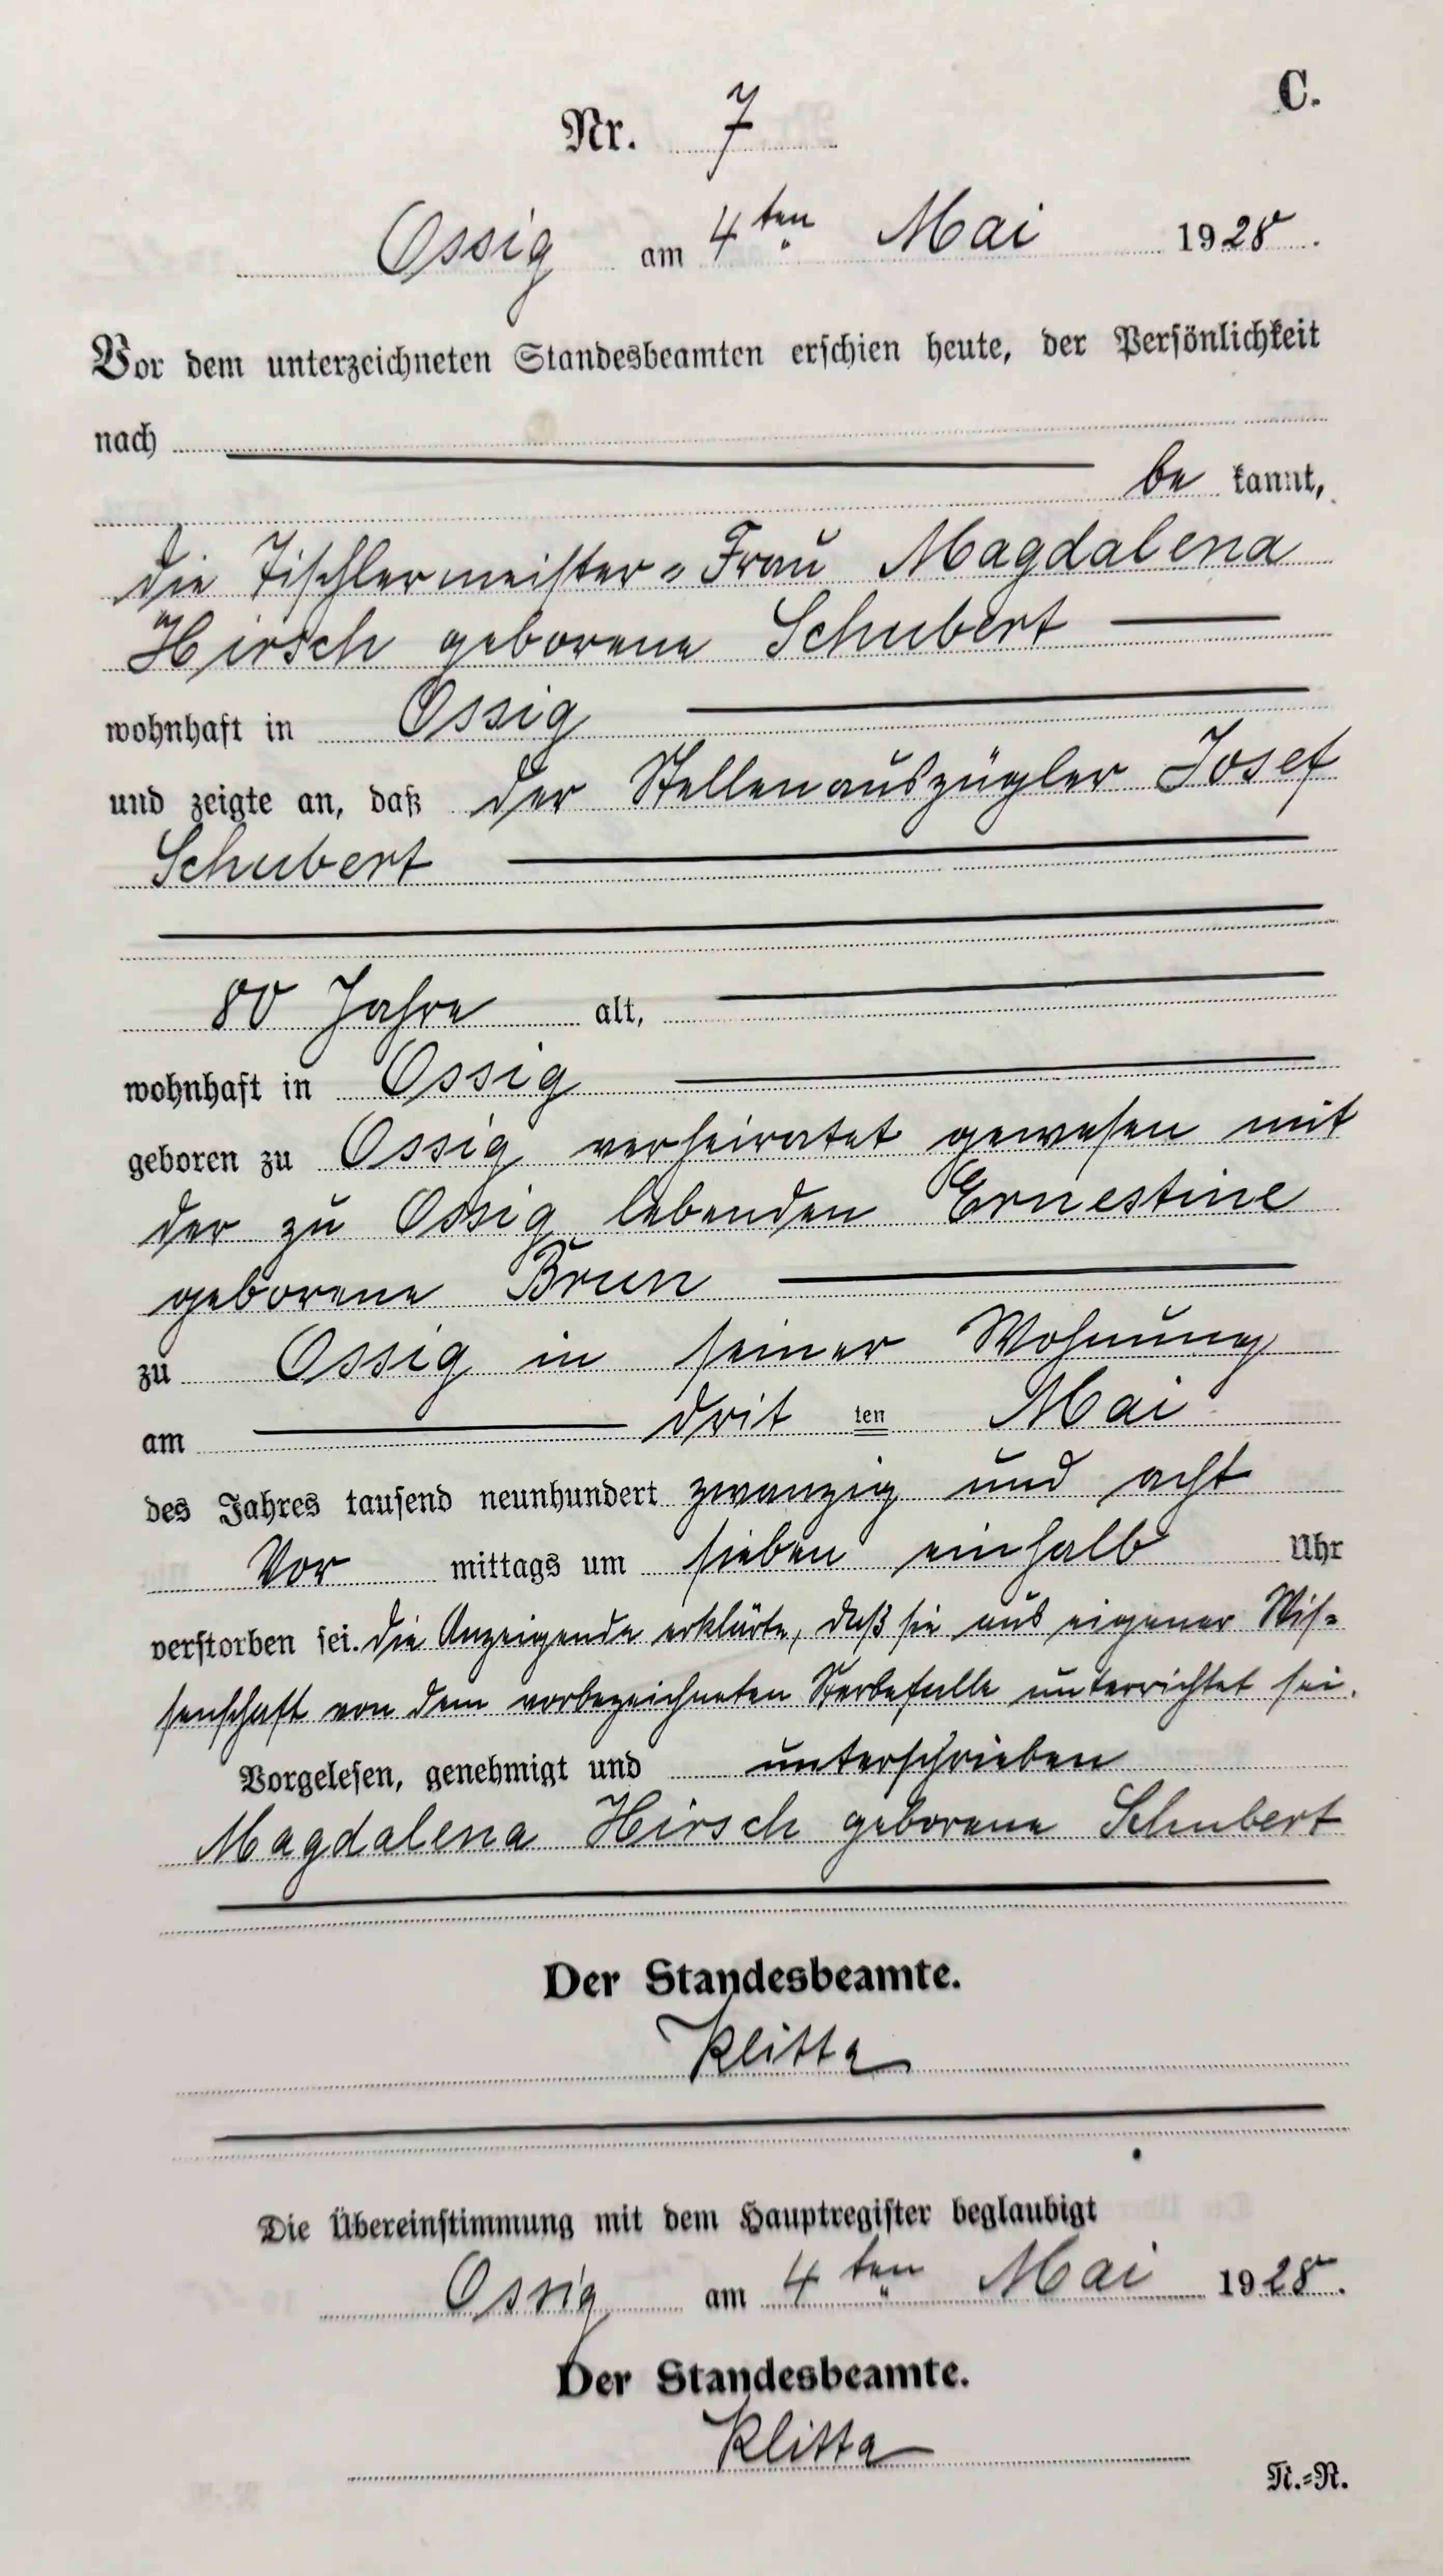 C.
Nr. 7
Ossig am 4ten Mai 1928.
Vor dem unterzeichneten Standesbeamten erschien heute, der Persönlichkeit
nach
be kannt,
die Tischlermeister-Frau Magdalena
Hirsch geborene Schubert
wohnhaft in Ossig
und zeigte an, daß der Stellenauszügler Josef
Schubert
80 Jahre alt,
wohnhaft in Ossig
geboren zu Ossig verheiratet gewesen mit
der zu Ossig lebenden Ernestine
geborene Brun
zu Ossig in seiner Wohnung
am drit ten Mai
des Jahres tausend neunhundert zwanzig und acht
Vor mittags um sieben einhalb Uhr
verstorben sei. Die Anzeigende erklärte, daß sie aus eigener Wis-
senschaft von dem vorbezeichneten Sterbefalle unterrichtet sei.
Vorgelesen, genehmigt und unterschrieben
Magdalena Hirsch geborene Schubert
Der Standesbeamte.
Klitta
Die Übereinstimmung mit dem Hauptregister beglaubigt
Ossig am 4ten Mai 1928.
Der Standesbeamte.
Klitta
N.=R.